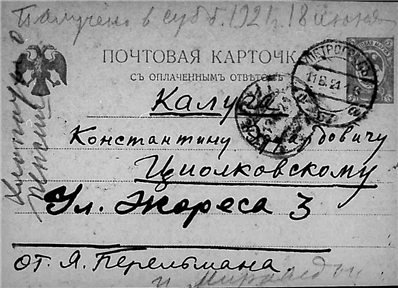 Получено в субб. 1921 г. 18 июня
ПОЧТОВАЯ КАРТОЧКА
СЪ ОПЛАЧЕННЫМЪ ОТВѢТОМЪ
ПЕТРОГРАДЪ
11.6.21
Калуга
Константину Эдуардовичу
Циолковскому
Ул. Жореса 3
от Я. Перельмана